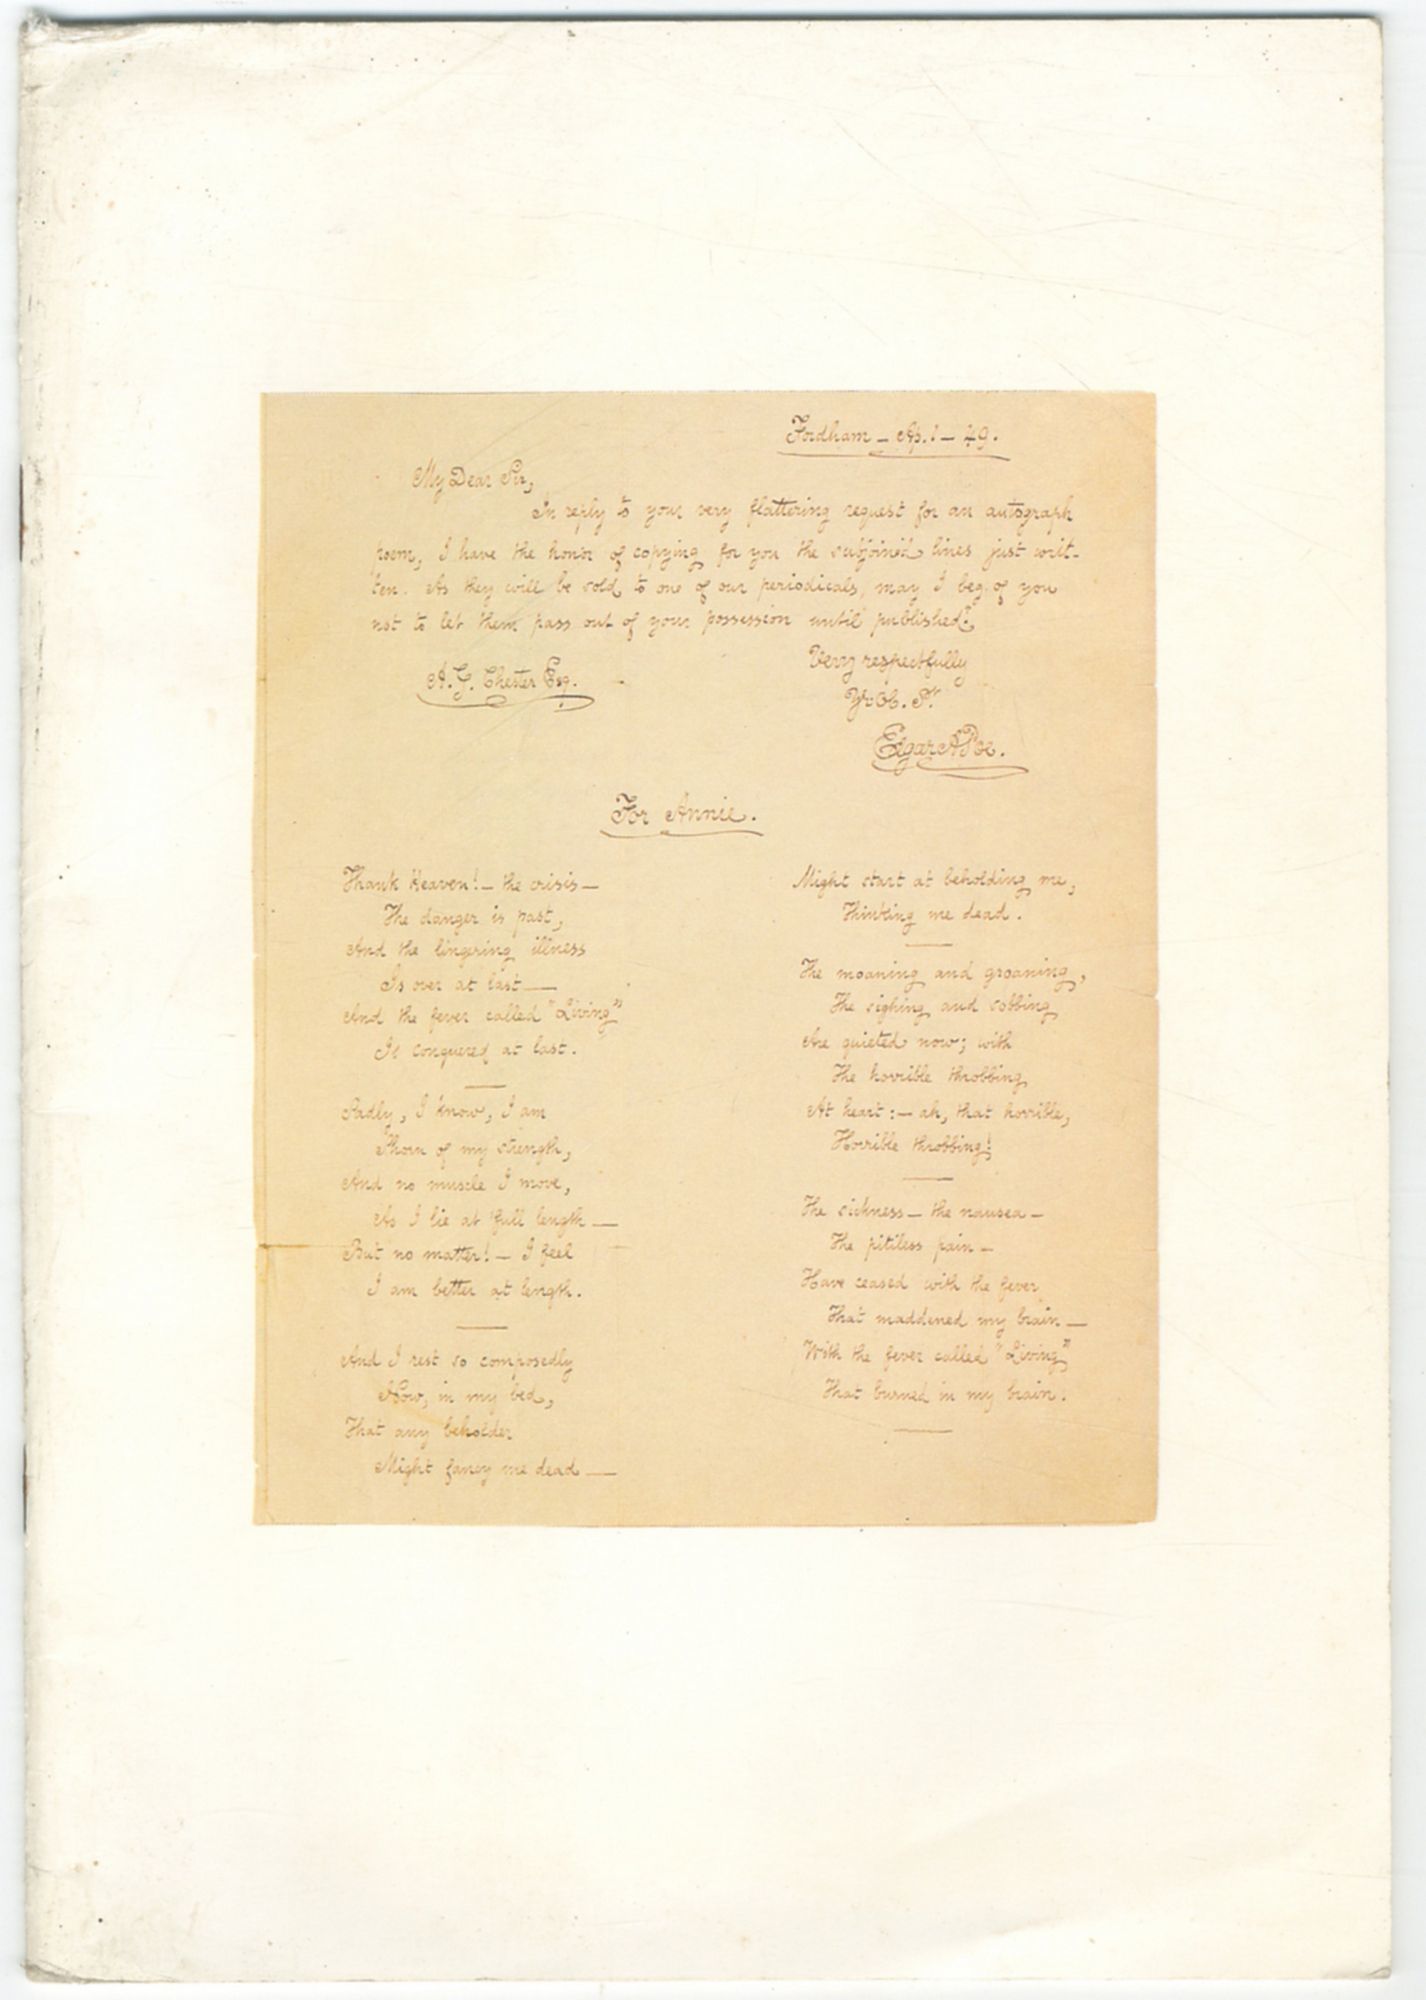 Fordham — Ap. 1 — 49.
My Dear Sir,
In reply to your very flattering request for an autograph
poem, I have the honor of copying for you the subjoined lines just writ-
ten. As they will be sold to one of our periodicals, may I beg of you
not to let them pass out of your possession until published?
Very respectfully
Yr Ob. St.
A. G. Chester Esq.
Edgar A Poe.
For Annie.
Thank Heaven! — the crisis —
The danger is past,
And the lingering illness
Is over at last —
And the fever called "Living"
Is conquered at last.
Sadly, I know, I am
Shorn of my strength,
And no muscle I move,
As I lie at full length —
But no matter! — I feel
I am better at length.
And I rest so composedly
Now, in my bed,
That any beholder
Might fancy me dead —
Might start at beholding me,
Thinking me dead.
The moaning and groaning,
The sighing and sobbing
Are quieted now; with
The horrible throbbing
At heart: — ah, that horrible,
Horrible throbbing!
The sickness — the nausea —
The pitiless pain —
Have ceased with the fever
That maddened my brain —
With the fever called "Living"
That burned in my brain.